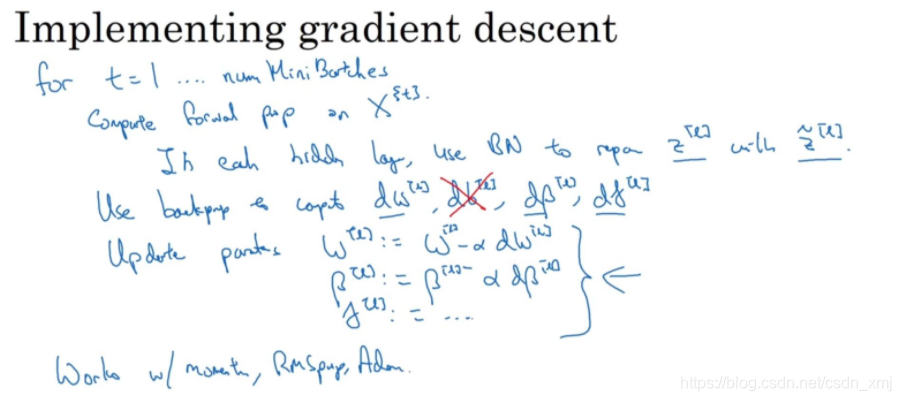 Implementing gradient descent
for t=1 .... num Mini Batches
Compute forwad prop on X^{t}.
In eah hidden lay, use BN to repa z^[l] with z̃^[l].
Use backprop to compt dw^[l], db^[l], dβ^[l], dγ^[l]
Update parates w^[l] := w^[l] - α dw^[l]
β^[l] := β^[l] - α dβ^[l]
γ^[l] := ...
Works w/ momentm, RMSprop, Adam.
https://blog.csdn.net/csdn_xmj